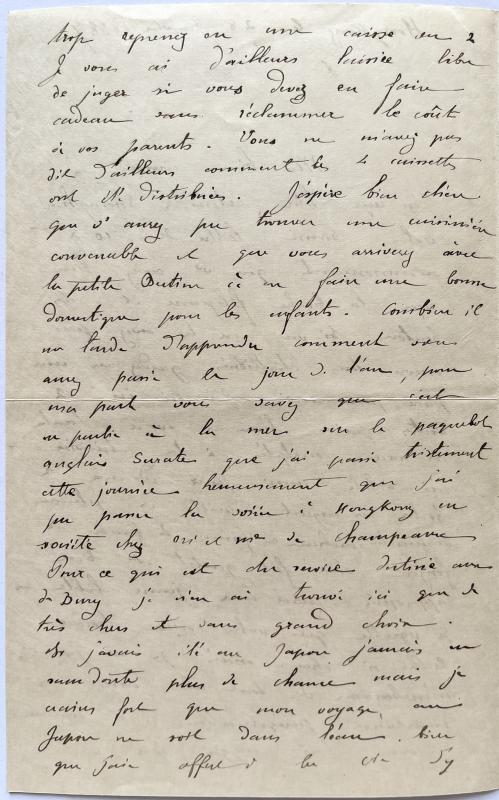 trop reprenez en une caisse ou 2
Je vous ai d'ailleurs laissée libre
de juger si vous devez en faire
cadeau sans réclammer le coût
à vos parents. Vous ne m'avez pas
dit d'ailleurs comment les 4 caissettes
ont été distribuées. J'éspère bien chère
que v's aurez pu trouver une cuisinière
convenable et que vous arriverez avec
la petite à en faire une bonne
domestique pour les enfants. Combien il
me tarde d'apprendre comment vous
aurez passé le jour de l'an, pour
ma part vous savez que c'est
en partie à la mer sur le paquebot
anglais Surate que j'ai passé tristement
cette journée heureusement que j'ai
pu passer la soirée à Hongkong en
société chez Mr et Mme de Champeaux
Pour ce qui est du service destiné aux
de Bury je n'en ai trouvé ici que de
très chers et sans grand choix.
Si j'avais été au Japon j'aurais eu
sans doute plus de chance mais je
crains fort que mon voyage au
Japon ne soit dans l'eau, bien
que j'aie offert à la Cie